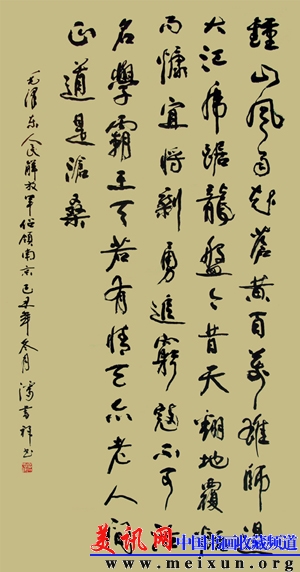 鍾山風雨起蒼黄百萬雄師過
大江虎踞龍盤今昔天翻地覆慨
而慷宜將剩勇追窮寇不可沽
名學霸王天若有情天亦老人間
正道是滄桑
毛澤东人民解放军佔領南京己未年 月潘 祥书
美讯网 中国书画收藏频道
www.meixun.org